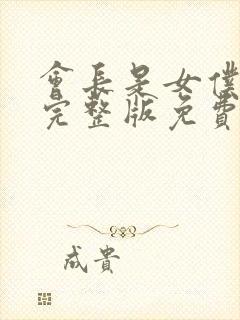 會長是女僕
完整版免費
成貴